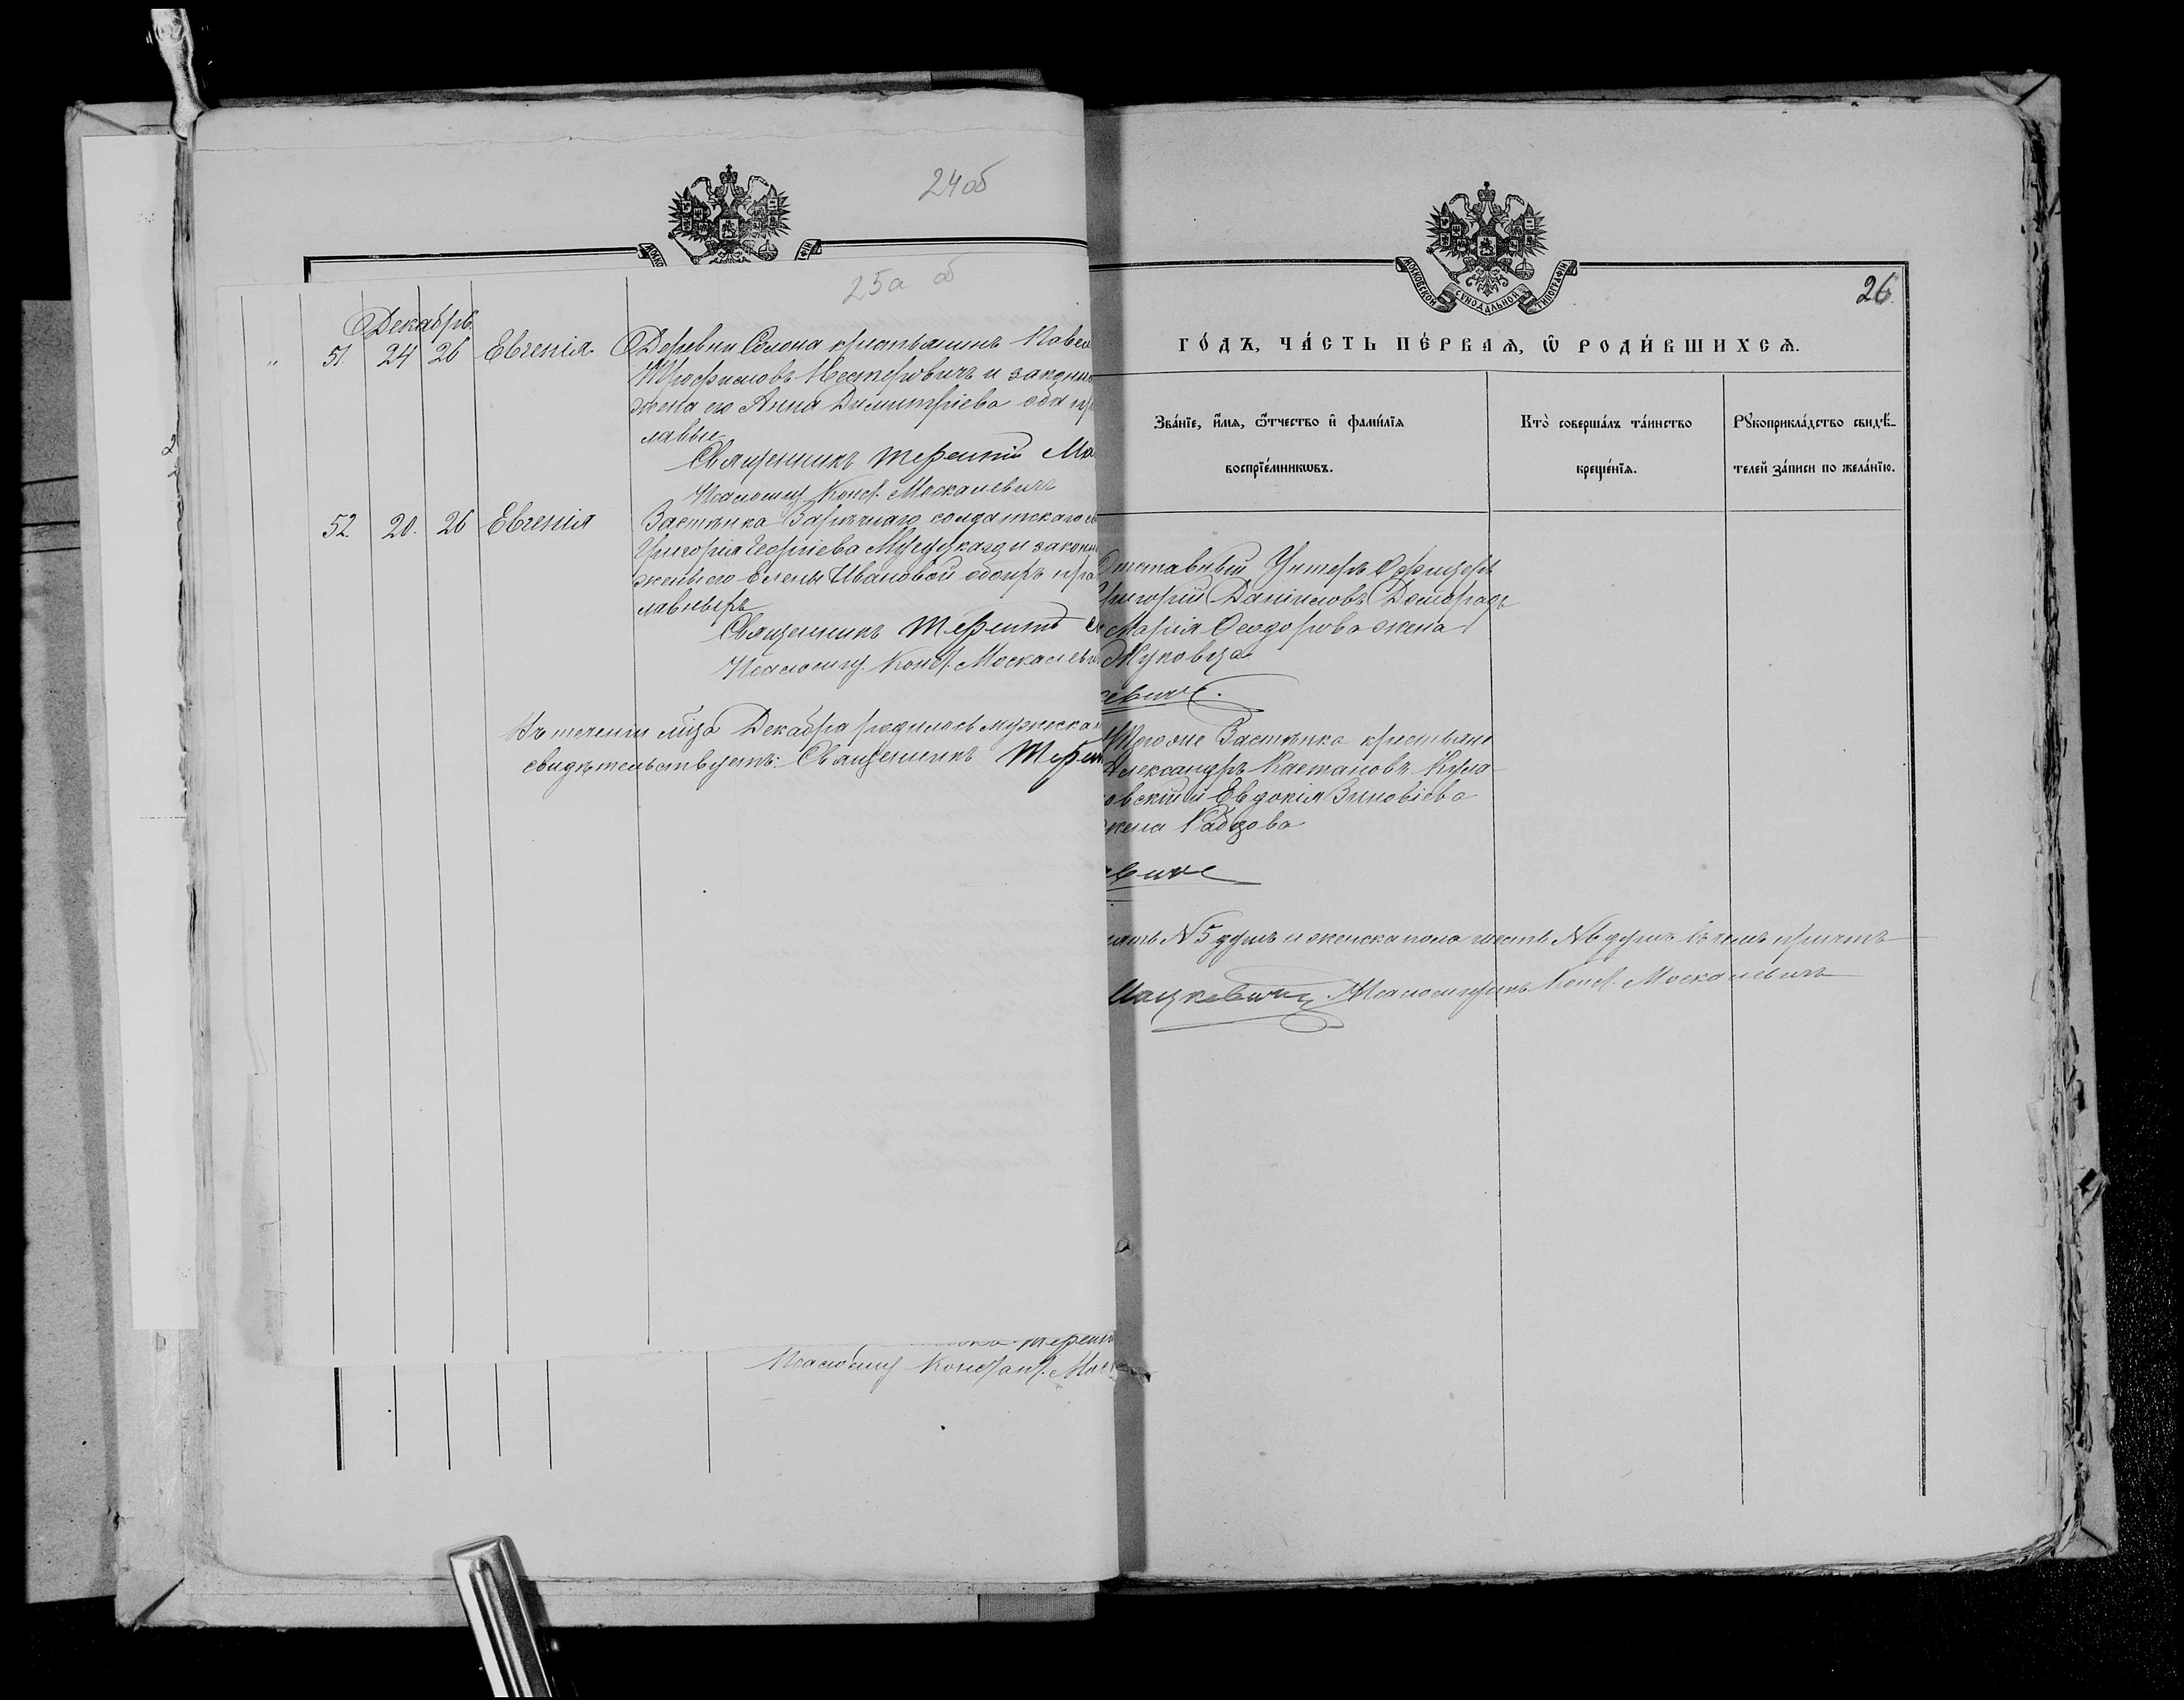 24об
25а об
Декабрь
" 51. 24 26 Евгенія Деревни Селона крестьянинъ Павел
Трофимовъ Нестеровичъ и законна
жена его Анна Димитріева оба пр
лавные
Священникъ Терентій Ма
Псаломщ. Конст. Москалевичъ
52. 20. 26 Евгенія Застѣнка Зарѣчнаго солдатскаго
Григорія Георгіева и законн
жены его Елены Ивановой обоихъ пра
лавныхъ
Священникъ Терентій
Псаломщ. Конст. Москалеви
Въ теченіи мѣца Декабря родилось мужеска
свидѣтельствуетъ: Священникъ Терен
Терен
Псаломщ Констант. Мос
МОСКОВСКОЙ СѴНОДАЛЬНОЙ ТИПОГРАФІИ
26.
ГО́ДЪ, ЧА́СТЬ ПЕ́РВАѦ, Ѡ҆ РОДИ́ВШИХСѦ.
Зва́нїе, и҆́мѧ, ѻ҆́тчество и҆ фами́лїѧ
воспрїе́мникѡвъ.
Кто̀ соверша́лъ та́инство
креще́нїѧ.
Рꙋкоприкла́дство свидѣ́-
телей за́писи по жела́нїю.
тставный Унтеръ Офицеръ
ригорій Даниловъ Доморадъ
Марія Ѳеодорова жена
Жуковца
севичъ.
Того же Застѣнка крестьяне
лександръ Каетановъ Кула-
овскій и Евдокія Зиновіева
жена
евичъ
пять №5 душъ и женска пола шесть №6 душъ въ чемъ причтъ
Мацкевичъ. Псаломщикъ Конст. Москалевичъ